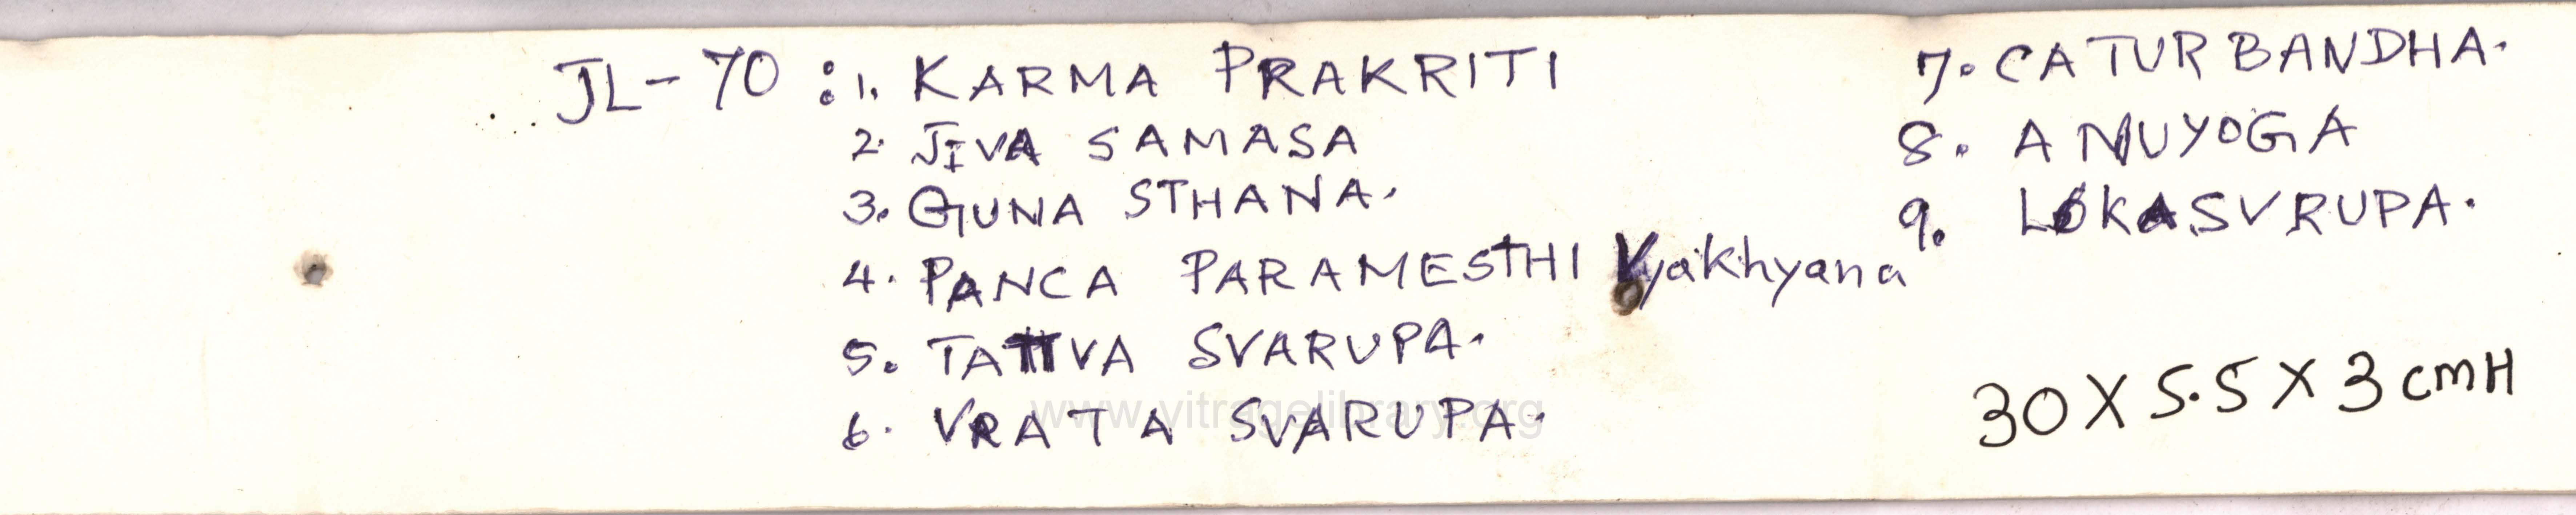 JL-70 : 1. KARMA PRAKRITI
2. JIVA SAMASA
3. GUNA STHANA.
4. PANCA PARAMESTHI Vyakhyana
5. TATTVA SVARUPA.
6. VRATA SVARUPA.
7. CATUR BANDHA.
8. ANUYOGA
9. LOKASVRUPA.
30 X 5.5 X 3 cmH
www.vitragelibrary.org